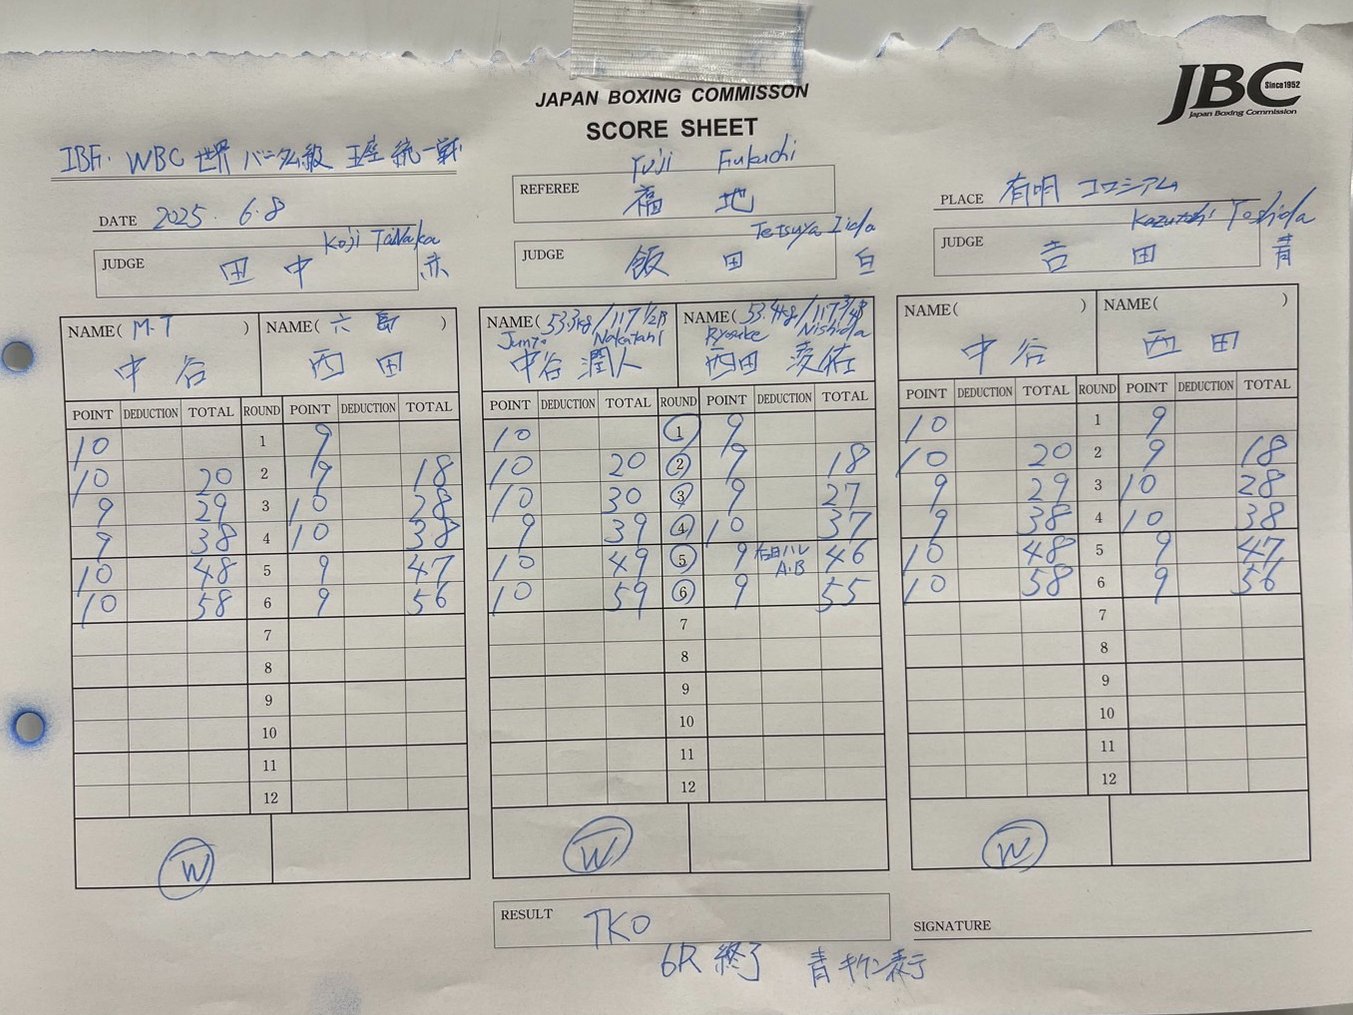 JBC Since1952
Japan Boxing Commission
JAPAN BOXING COMMISSON
SCORE SHEET
IBF・WBC 世界 バンタム級 王座 統一戦
DATE 2025.6.8
REFEREE Yuji Fukuchi 福地
PLACE 有明コロシアム
JUDGE Koji Tanaka 田中 赤
JUDGE Tetsuya Iida 飯田 白
JUDGE Kazutoshi Yoshida 吉田 青
NAME( M.T ) 中谷
NAME( 六島 ) 西田
POINT DEDUCTION TOTAL ROUND POINT DEDUCTION TOTAL
10 1 9
10 20 2 9 18
9 29 3 10 28
9 38 4 10 38
10 48 5 9 47
10 58 6 9 56
7
8
9
10
11
12
W
NAME( 53.3kg/117 1/2P
Junto Nakatani
中谷 潤人
NAME( 53.4kg/117 3/4P
Ryosuke Nishida
西田 凌佑
POINT DEDUCTION TOTAL ROUND POINT DEDUCTION TOTAL
10 1 9
10 20 2 9 18
10 30 3 9 27
9 39 4 10 37
10 49 5 9 右目ハレ A・B 46
10 59 6 9 55
7
8
9
10
11
12
W
NAME( ) 中谷
NAME( ) 西田
POINT DEDUCTION TOTAL ROUND POINT DEDUCTION TOTAL
10 1 9
10 20 2 9 18
9 29 3 10 28
9 38 4 10 38
10 48 5 9 47
10 58 6 9 56
7
8
9
10
11
12
W
RESULT TKO
SIGNATURE
6R 終了 青 キケン表示